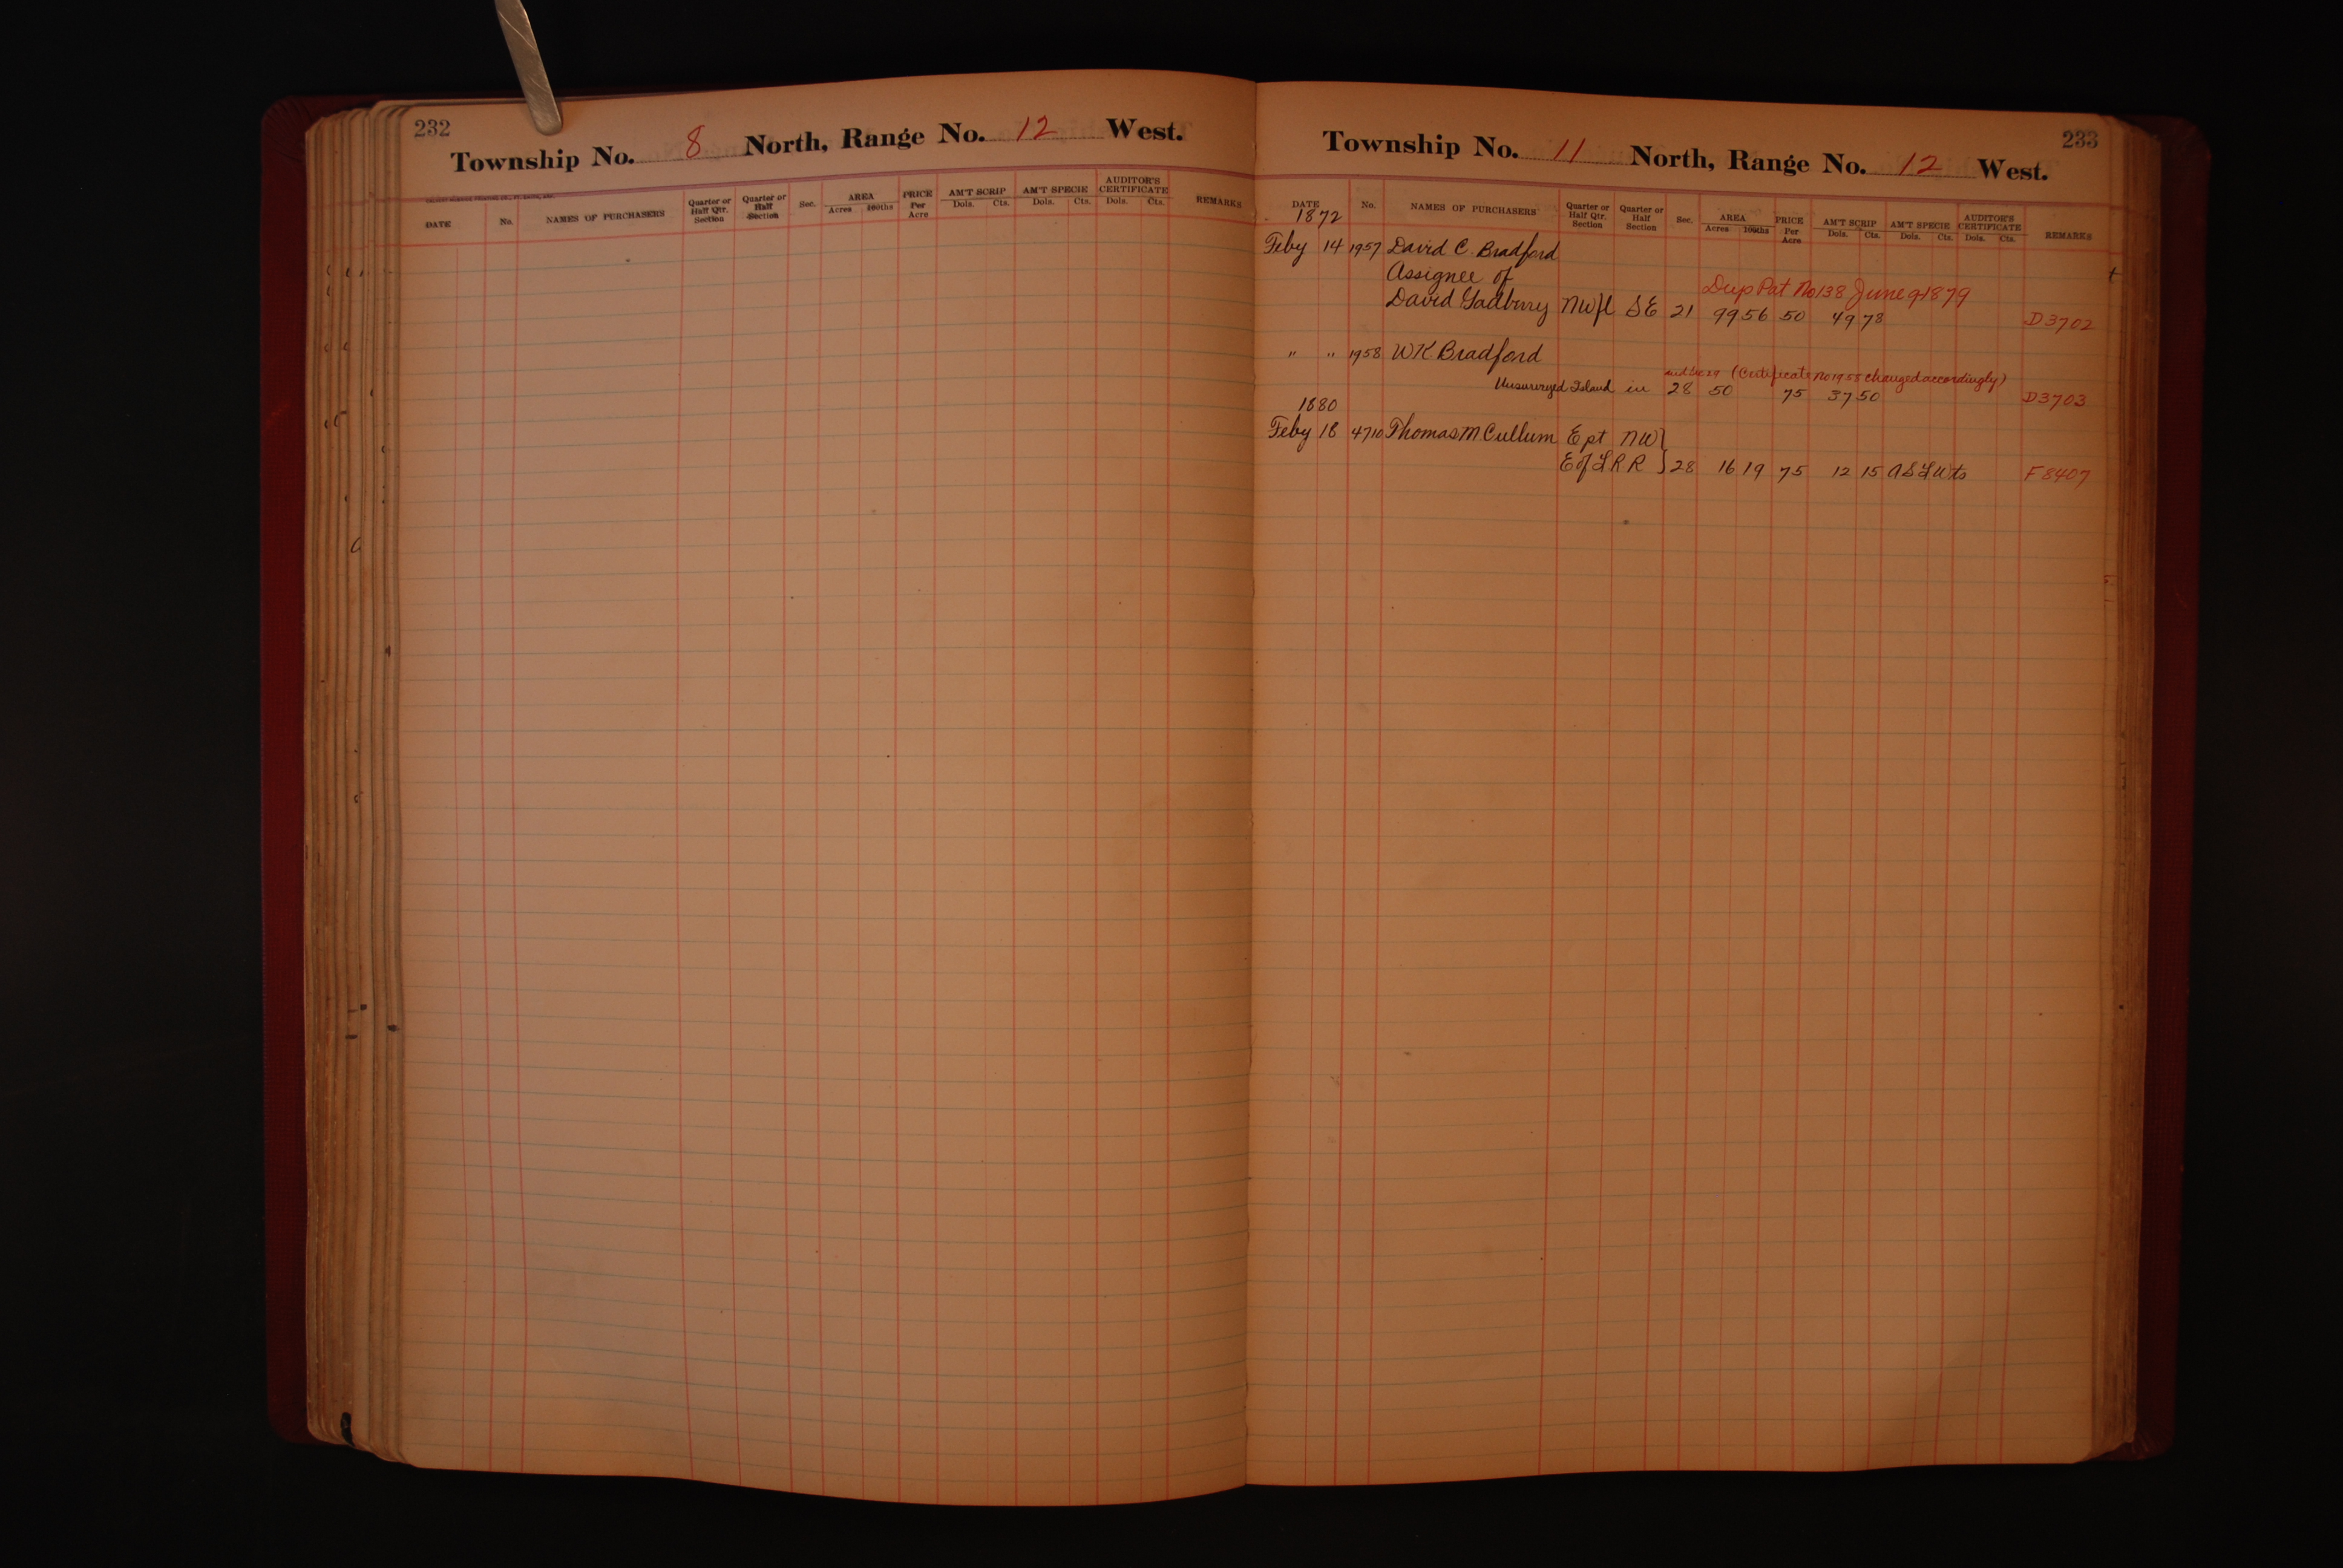 232
Township No. 8 North, Range No. 12 West.
DATE No. NAMES OF PURCHASERS Quarter or Half Qtr. Section Quarter or Half Section Sec. AREA Acres 100ths PRICE Per Acre AM'T SCRIP Dols. Cts. AM'T SPECIE Dols. Cts. AUDITOR'S CERTIFICATE Dols. Cts. REMARKS
233
Township No. 11 North, Range No. 12 West.
DATE No. NAMES OF PURCHASERS Quarter or Half Qtr. Section Quarter or Half Section Sec. AREA Acres 100ths PRICE Per Acre AM'T SCRIP Dols. Cts. AM'T SPECIE Dols. Cts. AUDITOR'S CERTIFICATE Dols. Cts. REMARKS
1872
Feby 14 1957 David C. Bradford
Assignee of
Dup Pat No 138 June 9 1879
David Gadberry NW fl SE 21 99 56 50 49 78 D 3702
" " 1958 W K Bradford
(Certificate No 1958 changed accordingly)
Unsurveyed Island in 28 50 75 37 50 D 3703
1880
Feby 18 4710 Thomas M Cullum E pt NW }
E of L R R } 28 16 19 75 12 15 F 8407